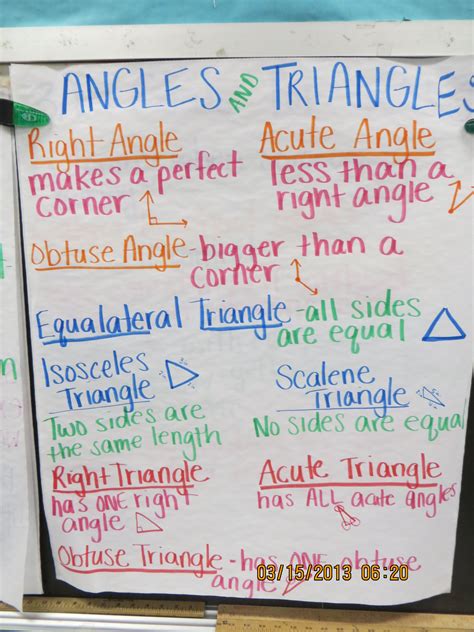 ANGLES AND TRIANGLES
Right Angle
makes a perfect
corner
Acute Angle
less than a
right angle
Obtuse Angle - bigger than a
corner
Equalateral Triangle - all sides
are equal
Isosceles
Triangle
Two sides are
the same length
Scalene
Triangle
No sides are equal
Right Triangle
has ONE right
angle
Acute Triangle
has ALL acute angles
Obtuse Triangle - has ONE obtuse
angle
03/15/2013 06:20